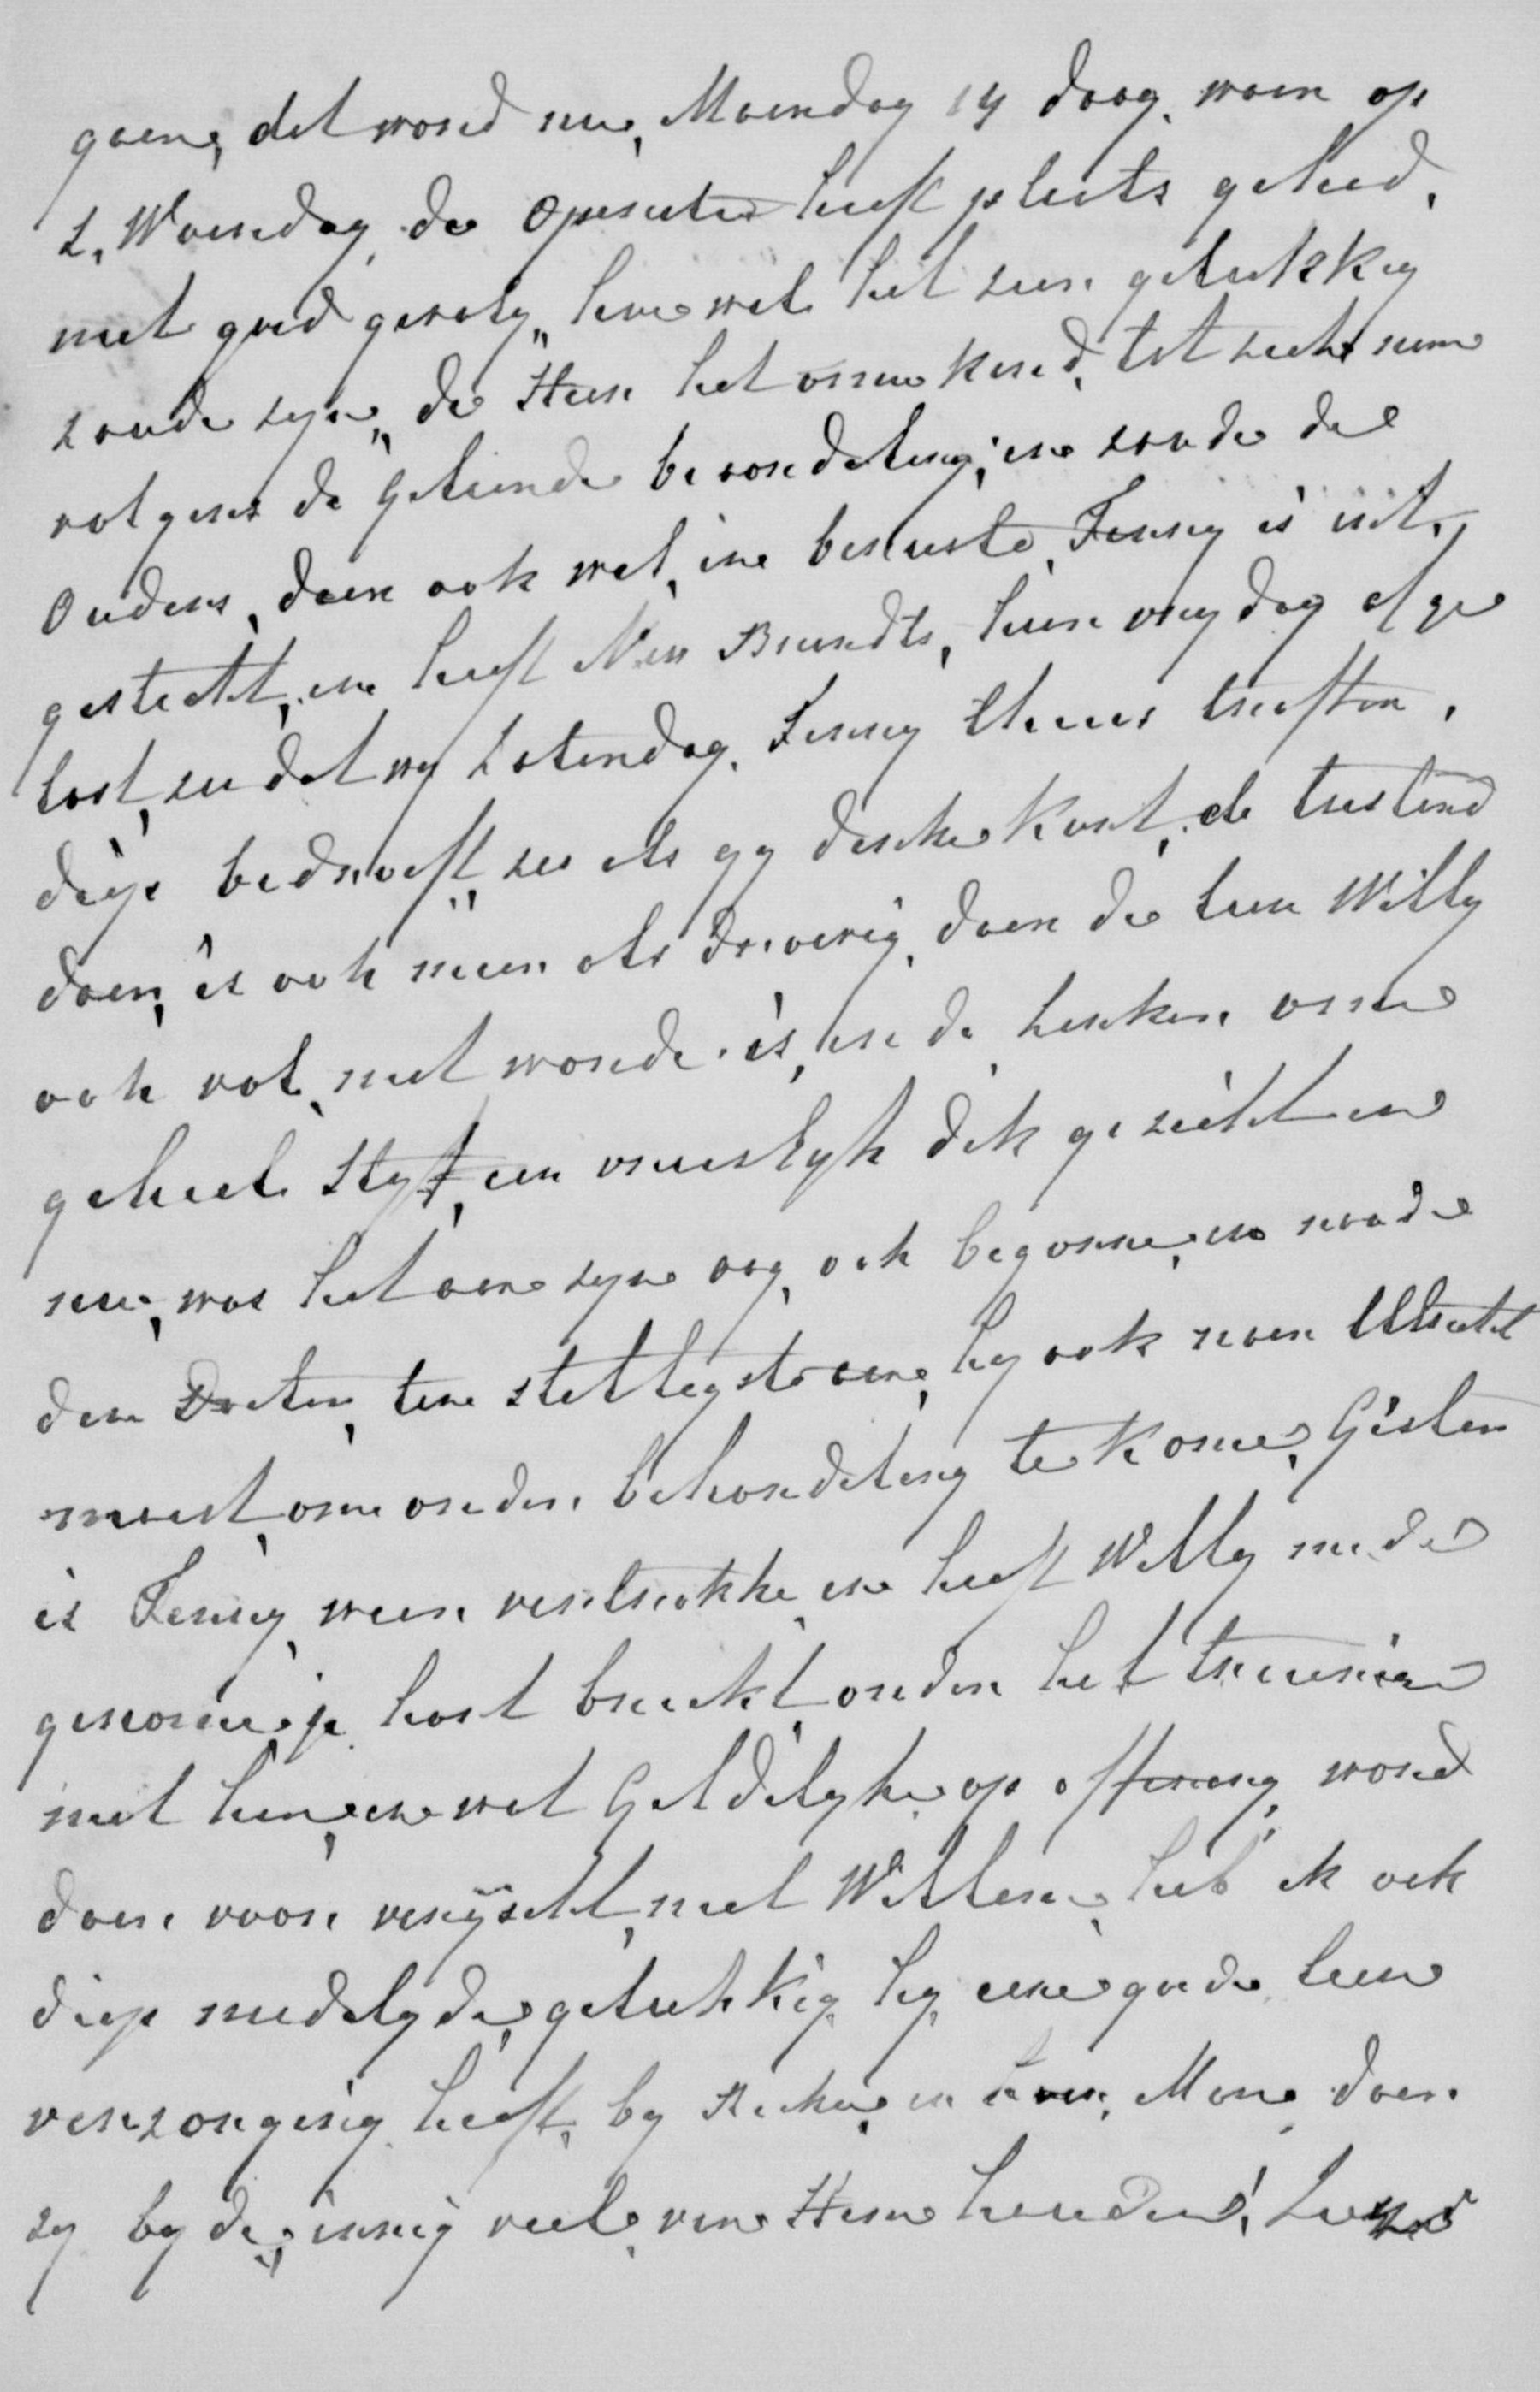 gaan, dat word nu, Maandag 14 daag, waar op
L, Woensdag, de Operatie heeft plaats gehad,
met goed gevolg, hoe wel het een gelukkig
zoude zyn, de Heer het
volgens de beoordeling, en zoude de
Ouders, daar ook wel, in beruste, Fenny is uit,
gesteld, en heeft Brandts, haar vrydag afge
last, zu dat wy Zaterdag, Fenny thuis troffen,
diep bedroeft, zu als gy denke kunt, de toestand
daar, is ook meer als droevig, daar de heer Willy
ook vol met wonde is, en de henker
geheel Styf, een vreeslyk dik gezicht en
nu, was het aan zyn oog, ook begonne, en raade
den Docter, ten stelligste aan, hy ook naar Utrecht
moest, om onder, behandeling te kome, Gister
is Fenny, weer vertrokke, en heeft Willy mede
genome, je hart breekt, onder het treurige
met hun, en wat Geldelyke op offering, word
daar voor vereischt, met Willem, heb ik ook
diep medelyde, gelukkig, hy eene goede
verzorging heeft, by en Mone, daar
zy by de, innig veel, van Hem houden,